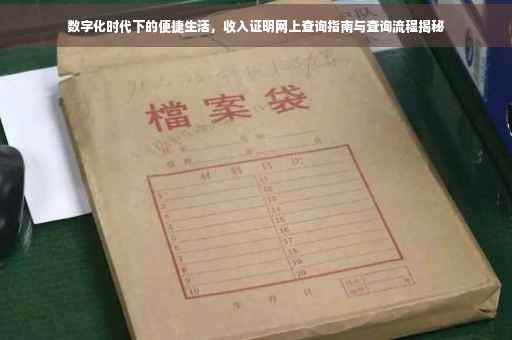 数字化时代下的便捷生活，收入证明网上查询指南与查询流程揭秘
檔案袋
材料目次
1 11
2 12
3 13
4 14
5 15
6 16
7 17
8 18
9 19
10 20
年 月 日